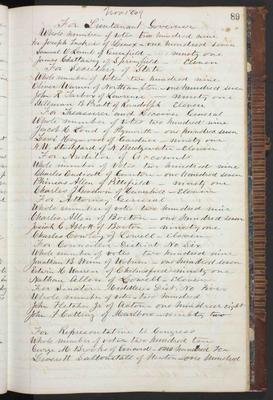 89
For Lieutenant Governor
Whole number of votes two hundred nine
Joseph Tucker of Lenox - one hundred seven
Samuel O. Lamb of Greenfield - ninety one
James Chattaway of Springfield Eleven
For Secretary of State
Whole number of votes two hundred nine
Oliver Warner of Northampton - one hundred seven
John K. Tarbox of Lawrence ninety one
of Randolph Eleven
For Treasurer and Receiver General
Whole number of votes two hundred nine
Jacob H. Loud of Plymouth - one hundred seven
Levi Heywood of Gardner - ninety one
of N. Bridgewater - Eleven
For Auditor of Accounts
Whole number of votes two hundred nine
Charles Endicott of Canton - one hundred seven
Phineas Allen of Pittsfield - ninety one
Charles of - Eleven
For Attorney General
Whole number of votes two hundred nine
Charles Allen of Boston - one hundred seven
Josiah G. Abbott of Boston - ninety one
Charles Cowley of Lowell - Eleven
For Councillor District No Six
Whole number of votes two hundred nine
of Woburn - one hundred seven
of Chelmsford ninety one
Nathan Allen of Lowell - Eleven
For Senator Middlesex Dist. No Five
Whole number of votes two hundred
John Fletcher Jr of Acton - one hundred eight
John F. Cutting of Marlboro - ninety two
For Representative to Congress
Whole number of votes two hundred ten
George M. Brooks of Concord - one hundred
Leverett Saltonstall of Newton - one hundred